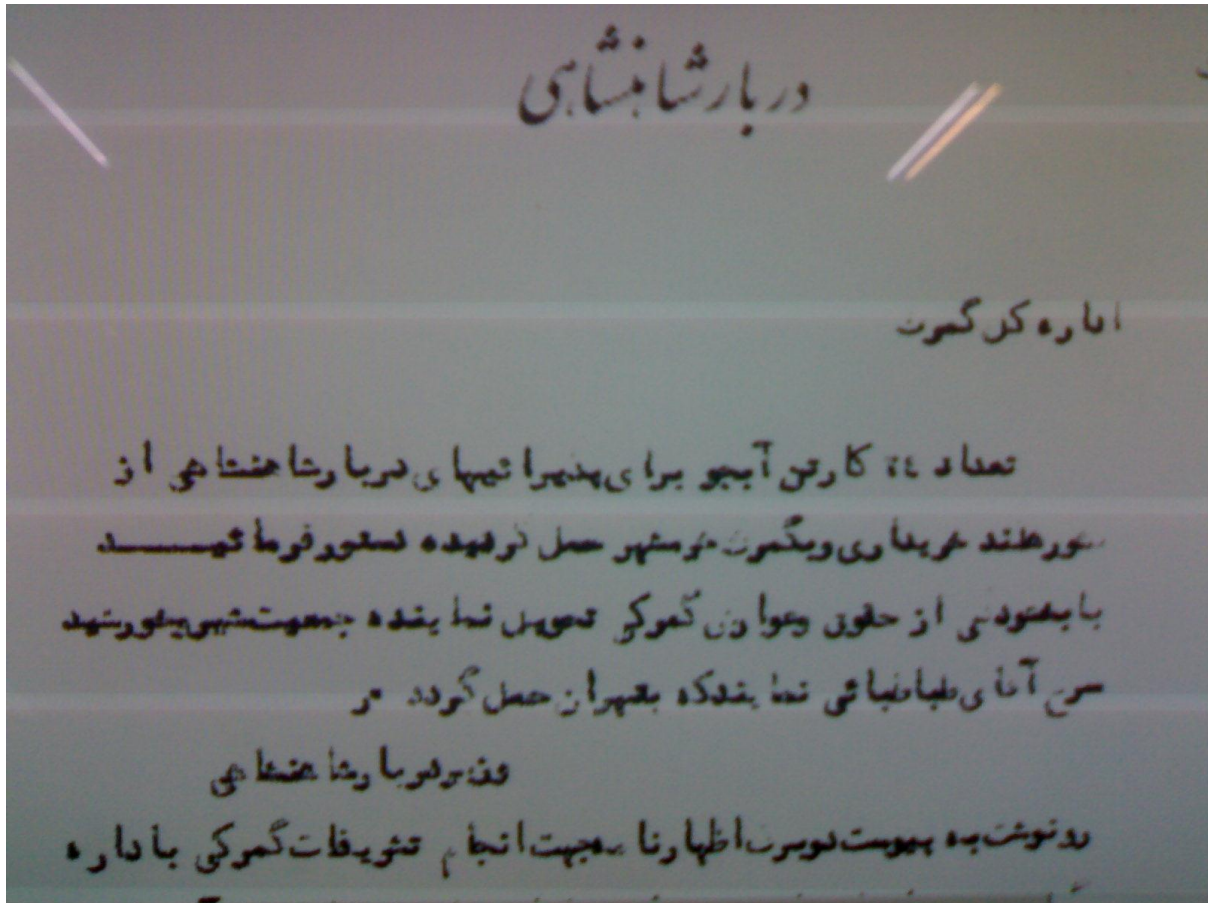 دربار شاهنشاهی
اداره کل گمرک
تعداد ٢٤ کارتن آبجو برای پذیرائیهای دربار شاهنشاهی از
هلند خریداری وبگمرک خرمشهر حمل گردیده دستور فرمائید
با بخشودگی از حقوق وعوارض گمرکی تحویل نماینده جمعیت شیر وخورشید
سرخ آقای طباطبائی نمایندکه بتهران حمل گردد
وزیر دربار شاهنشاهی
رونوشت به پیوست دوبرگ اظهارنامه جهت انجام تشریفات گمرکی باداره